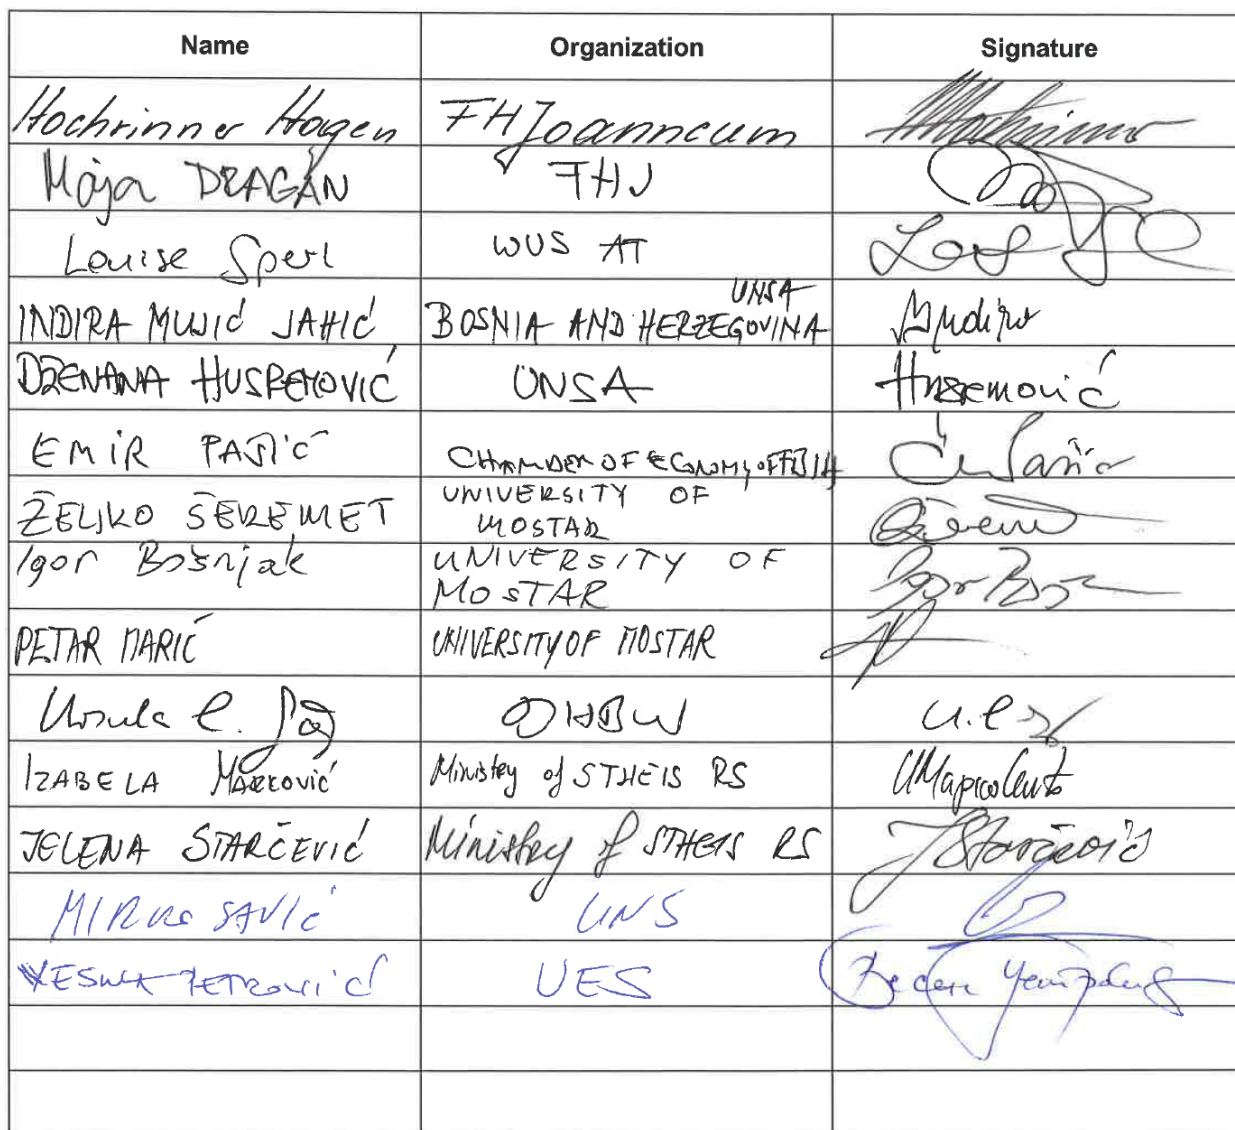 Name Organization Signature
Hochrinner Hagen FH Joanneum Hochrinner
Maja DRAGAN FHJ
Louise Sperl WUS AT
UNSA
INDIRA MUJIĆ JAHIĆ BOSNIA AND HERZEGOVINA Indira
DŽENANA HUSREMOVIĆ UNSA Husremović
EMIR PAŠIĆ CHAMBER OF ECONOMY OF FBIH
ŽELJKO ŠEREMET UNIVERSITY OF
MOSTAR
Igor Bošnjak UNIVERSITY OF
MOSTAR
PETAR MARIĆ UNIVERSITY OF MOSTAR
Ursula E. DHBW
IZABELA MARKOVIĆ Ministry of STHEIS RS
JELENA STARČEVIĆ Ministry of STHEIS RS JStarčević
MIRKO SAVIĆ UNS
VESNA PETROVIĆ UES